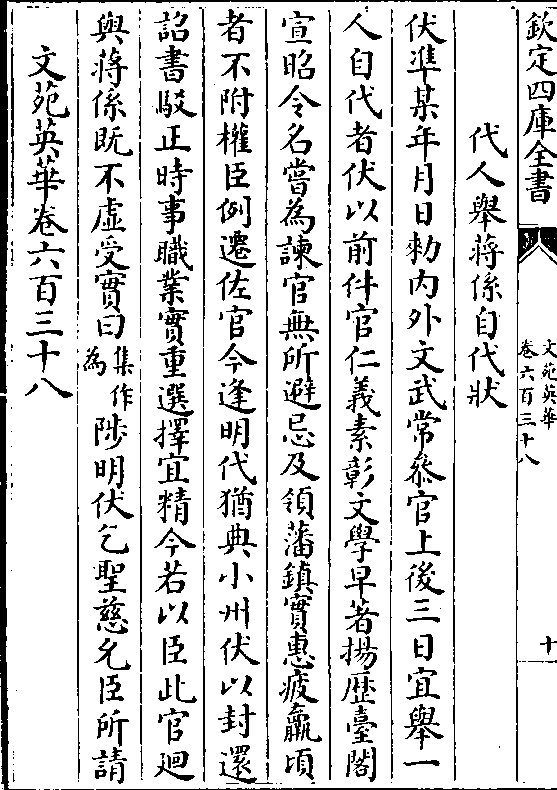 欽定四庫全書
文苑英華
卷六百三十八
十
代人舉蔣係自代狀
伏準某年月日勑内外文武常叅官上後三日宜舉一
人自代者伏以前件官仁義素彰文學早著揚歴臺閣
宣昭令名嘗為諫官無所避忌及領藩鎮實惠疲羸頃
者不附權臣例遷佐官今逢明代猶典小州伏以封還
詔書駁正時事職業實重選擇宜精今若以臣此官廻
與蔣係既不虚受實曰集作為陟明伏乞聖慈允臣所請
文苑英華卷六百三十八